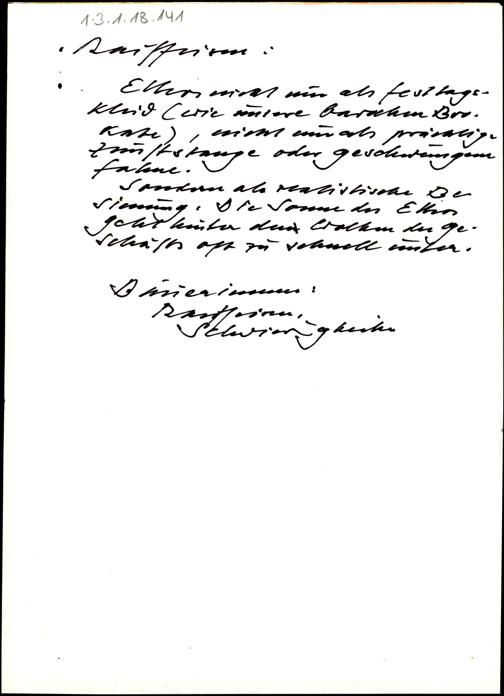 1.3.1.18.141
Raiffeisen:
Ethos nicht nur als Festtags-
kleid (wie unsere barocken Bro-
kate), nicht nur als prächtige
Zunftstange oder geschwungene
Fahne.
Sondern als realistische Be
sinnung. Die Sonne des Ethos
geht hinter den Wolken der Ge-
schäfte oft zu schnell unter.
Bäuerinnen:
Raiffeisen,